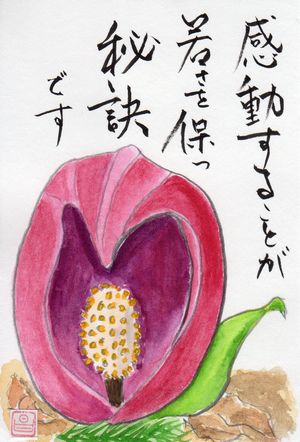 感動することが
若さを保つ
秘訣
です